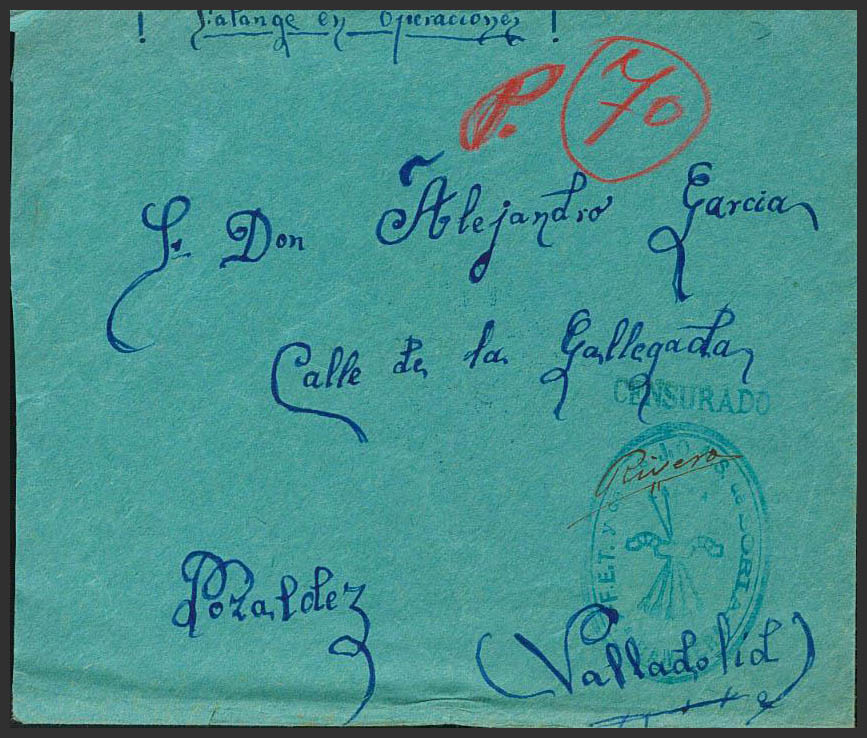 ! Falange en Operaciones !
P. 70
S. Don Alejandro Garcia
Calle de la Gallegada
CENSURADO
Rivero
F.E.T. y J.O.N.S. SORIA
Pozaldez
(Valladolid)